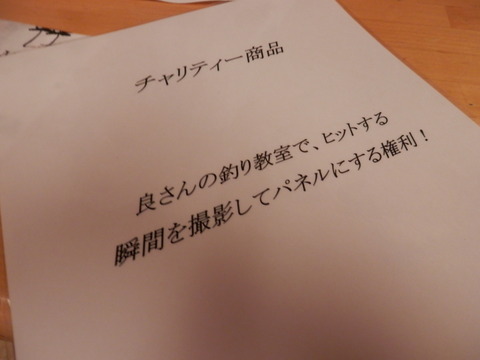 チャリティー商品
良さんの釣り教室で、ヒットする
瞬間を撮影してパネルにする権利！